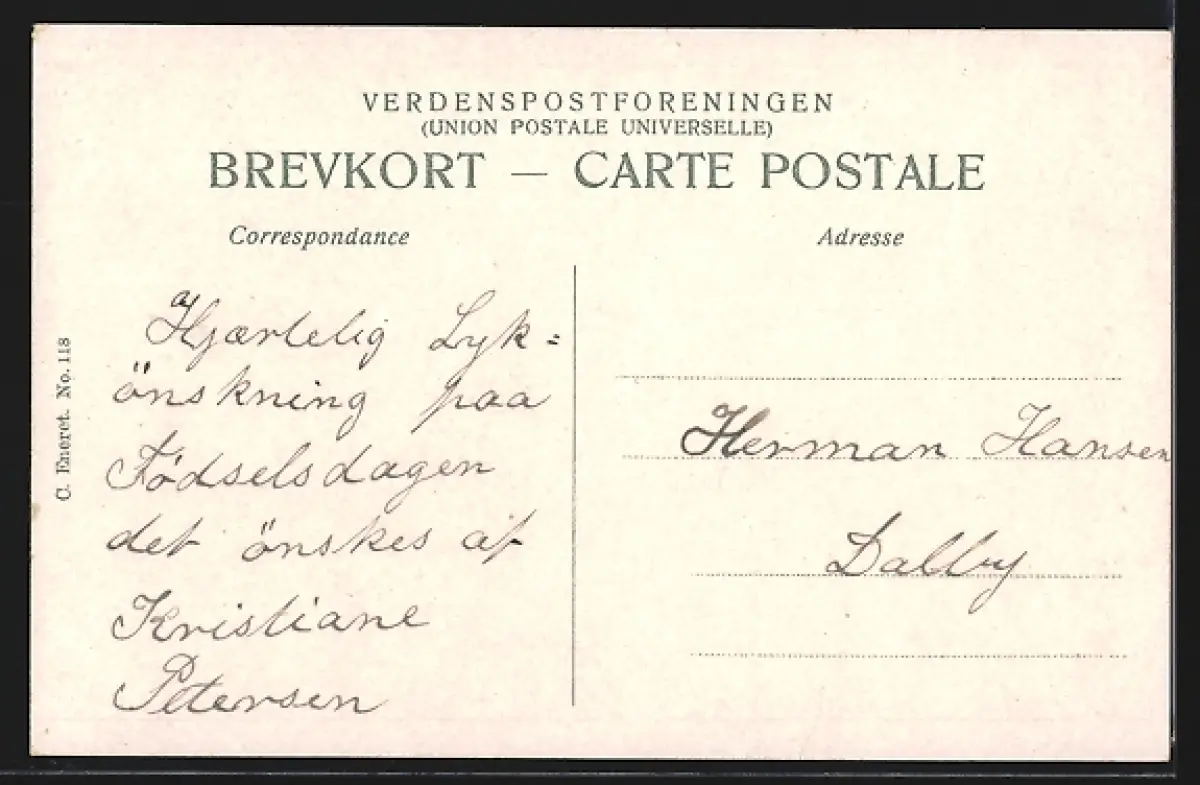 VERDENSPOSTFORENINGEN
(UNION POSTALE UNIVERSELLE)
BREVKORT — CARTE POSTALE
Correspondance
Adresse
Hjærtelig Lyk=
önskning paa
Födselsdagen
det önskes af
Kristiane
Petersen
Herman Hansen
Dalby
C. Eneret. No. 118